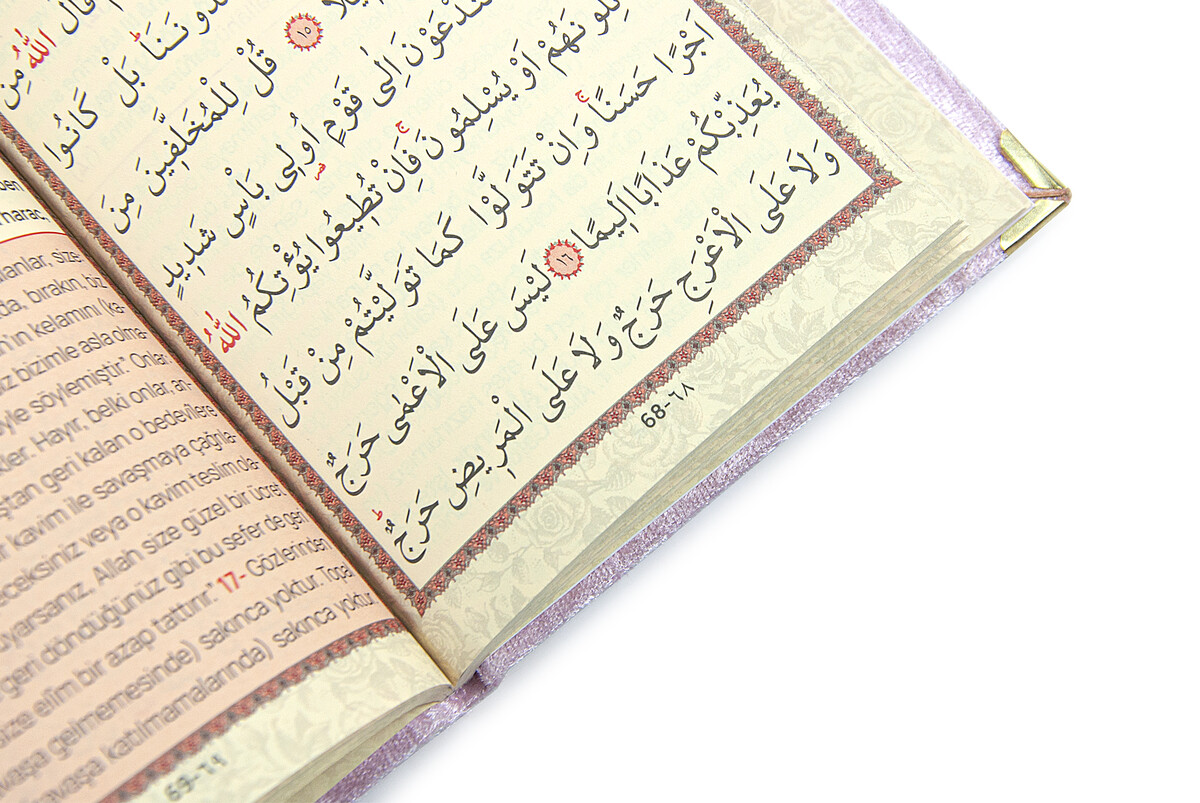 قَالَ اللّٰهُ مِنْ
بَلْ كَانُوا
﴿١٥﴾ قُلْ لِلْمُخَلَّف۪ينَ مِنَ
تُدْعَوْنَ اِلٰى قَوْمٍ اُو۬ل۪ي بَأْسٍ شَد۪يدٍ
اَوْ يُسْلِمُونَۚ فَاِنْ تُط۪يعُوا يُؤْتِكُمُ اللّٰهُ
اَجْرًا حَسَنًاۚ وَاِنْ تَتَوَلَّوْا كَمَا تَوَلَّيْتُمْ مِنْ قَبْلُ
يُعَذِّبْكُمْ عَذَابًا اَل۪يمًا ﴿١٦﴾ لَيْسَ عَلَى الْاَعْمٰى حَرَجٌ
وَلَا عَلَى الْاَعْرَجِ حَرَجٌ وَلَا عَلَى الْمَر۪يضِ حَرَجٌۜ
68-٦٨
harac,
size
da, bırakın, biz
kelamını (ka-
bizimle asla olma-
söylemiştir." Onlar,
Hayır, belki onlar, an-
geri kalan o bedevîlere
kavim ile savaşmaya çağrıla-
veya o kavim teslim da-
Allah size güzel bir ücret
geri döndüğünüz gibi bu sefer de geri
size elîm bir azap tattırır." 17- Gözlerinden
gelmemesinde) sakınca yoktur. Topal
katılmamalarında) sakınca yoktur.
69-٦٩